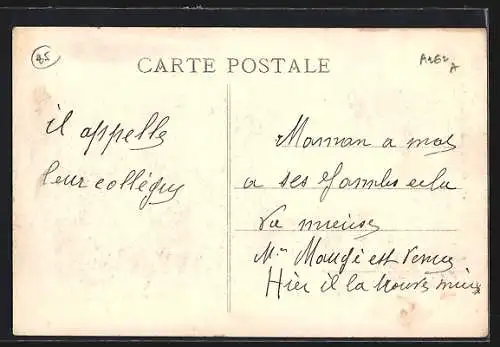 85
CARTE POSTALE
il appelle
leur collégue
Maman a mal
a ses Jambes cela
va mieux
Mr Maugé est venu
Hier il la trouve mieux